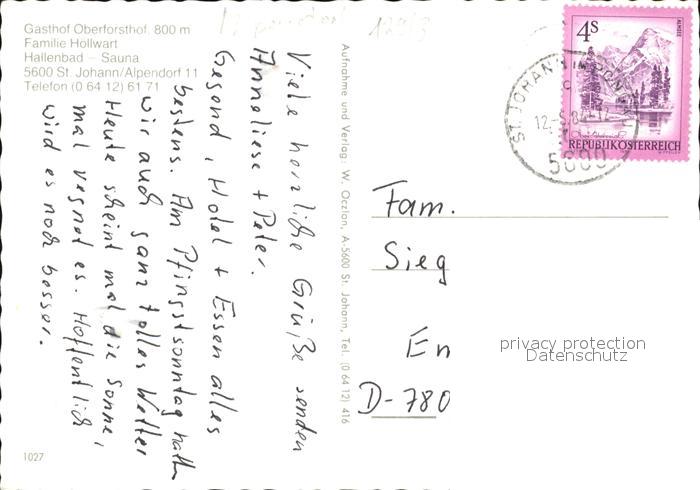 Gasthof Oberforsthof, 800 m
Familie Höllwart
Hallenbad – Sauna
5600 St. Johann/Alpendorf 11
Telefon (0 64 12) 61 71
Viele herzliche Grüße senden
Anneliese + Peter.
Gegend, Hotel + Essen alles
bestens. Am Pfingstsonntag hatten
wir auch ganz tolles Wetter
Heute scheint mal die Sonne,
mal regnet es. Hoffentlich
wird es noch besser.
1027
Aufnahme und Verlag: W. Oczlon, A-5600 St. Johann, Tel. (0 64 12) 416
4S
ALMSEE
REPUBLIK ÖSTERREICH
ST. JOHANN IM PONGAU
5600
Fam.
Sieg
En
D-780
privacy protection
Datenschutz